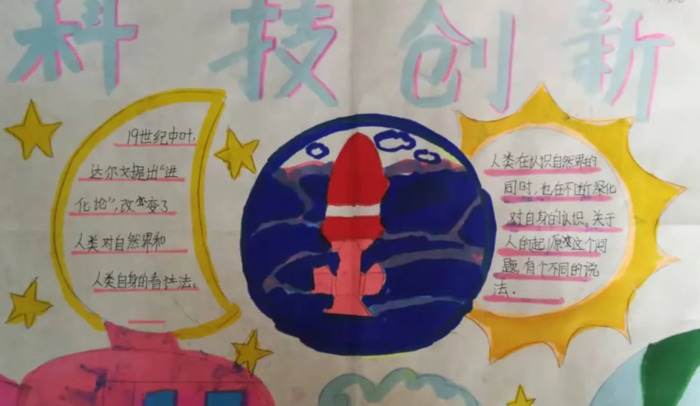 科技创新
19世纪中叶,
达尔文提出“进
化论”,改变了
人类对自然界和
人类自身的看法法.
人类在认识自然界的
同时,也在不断深化
对自身的认识。关于
人的起源这个问
题,有个不同的说
法.